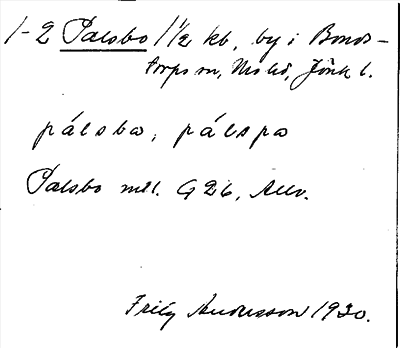 1-2 Palsbo 1 1/2 kb, by i Bonds-
torps sn, Mo hd, Jönk l.
pálsba, pálspa
Palsbo mtl. G 26, Allv.
Fritz Andersson 1930.